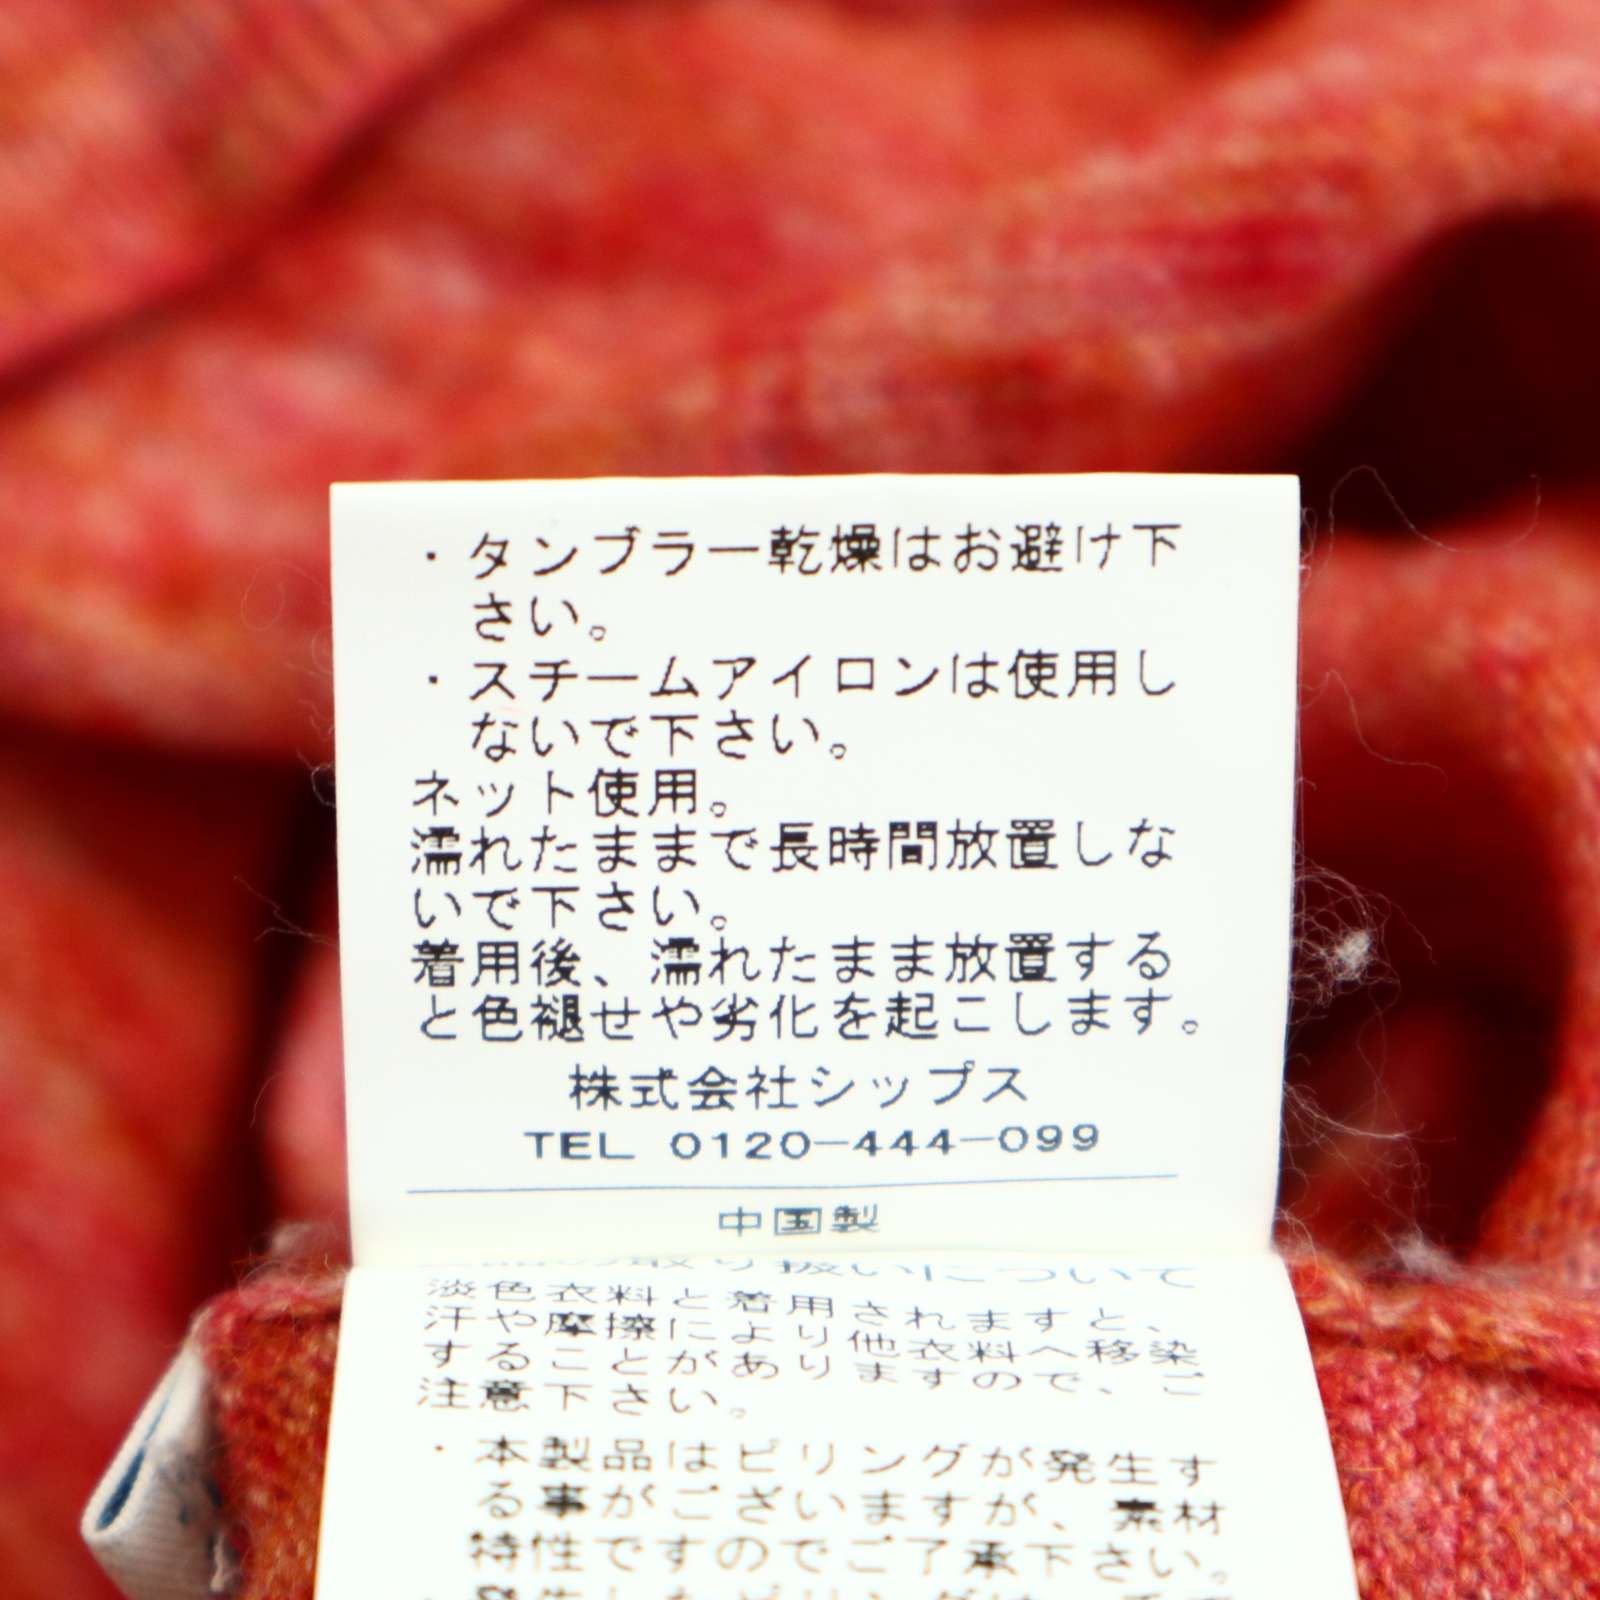 ・タンブラー乾燥はお避け下
さい。
・スチームアイロンは使用し
ないで下さい。
ネット使用。
濡れたままで長時間放置しな
いで下さい。
着用後、濡れたまま放置する
と色褪せや劣化を起こします。
株式会社シップス
TEL 0120-444-099
中国製
の取り扱いについて
淡色衣料と着用されますと、
汗や摩擦により他衣料へ移染
することがありますので、ご
注意下さい。
・本製品はピリングが発生す
る事がございますが、素材
特性ですのでご了承下さい。